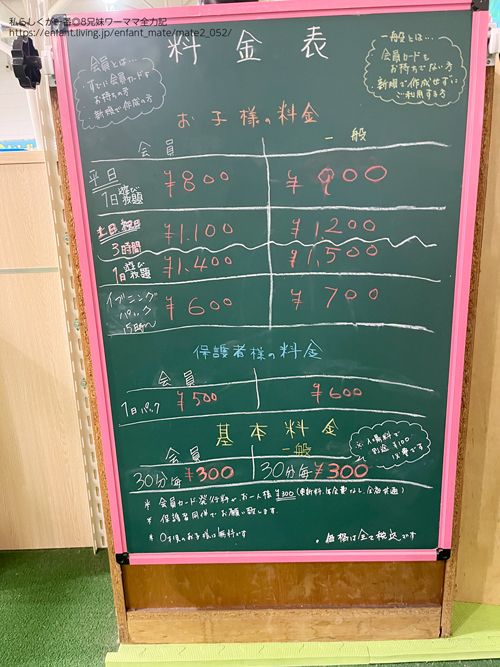 私らしくが一番◎8兄妹ワーママ全力記
https://enfant.living.jp/enfant_mate/mate2_052/
料金表
会員とは…
・すでに会員カードを
お持ちの方
・新規で作成の方
一般とは…
会員カードを
お持ちでない方
・新規で作成せずに
ご利用する方
お子様の料金
会員 一般
平日
1日遊び放題 ¥800 ¥900
土日祝日
3時間 ¥1,100 ¥1200
1日遊び放題 ¥1,400 ¥1,500
イブニング
パック
15時〜 ¥600 ¥700
保護者様の料金
会員 一般
1日パック ¥500 ¥600
基本料金
会員 一般
30分毎¥300 30分毎¥300
※入場料で
別途¥100
必要です
＊会員カード発行料がお一人様¥300(更新料、年会費なし、全店共通)
＊保護者同伴でお願い致します。
＊0才児のお子様は無料です
・価格は全て税込です